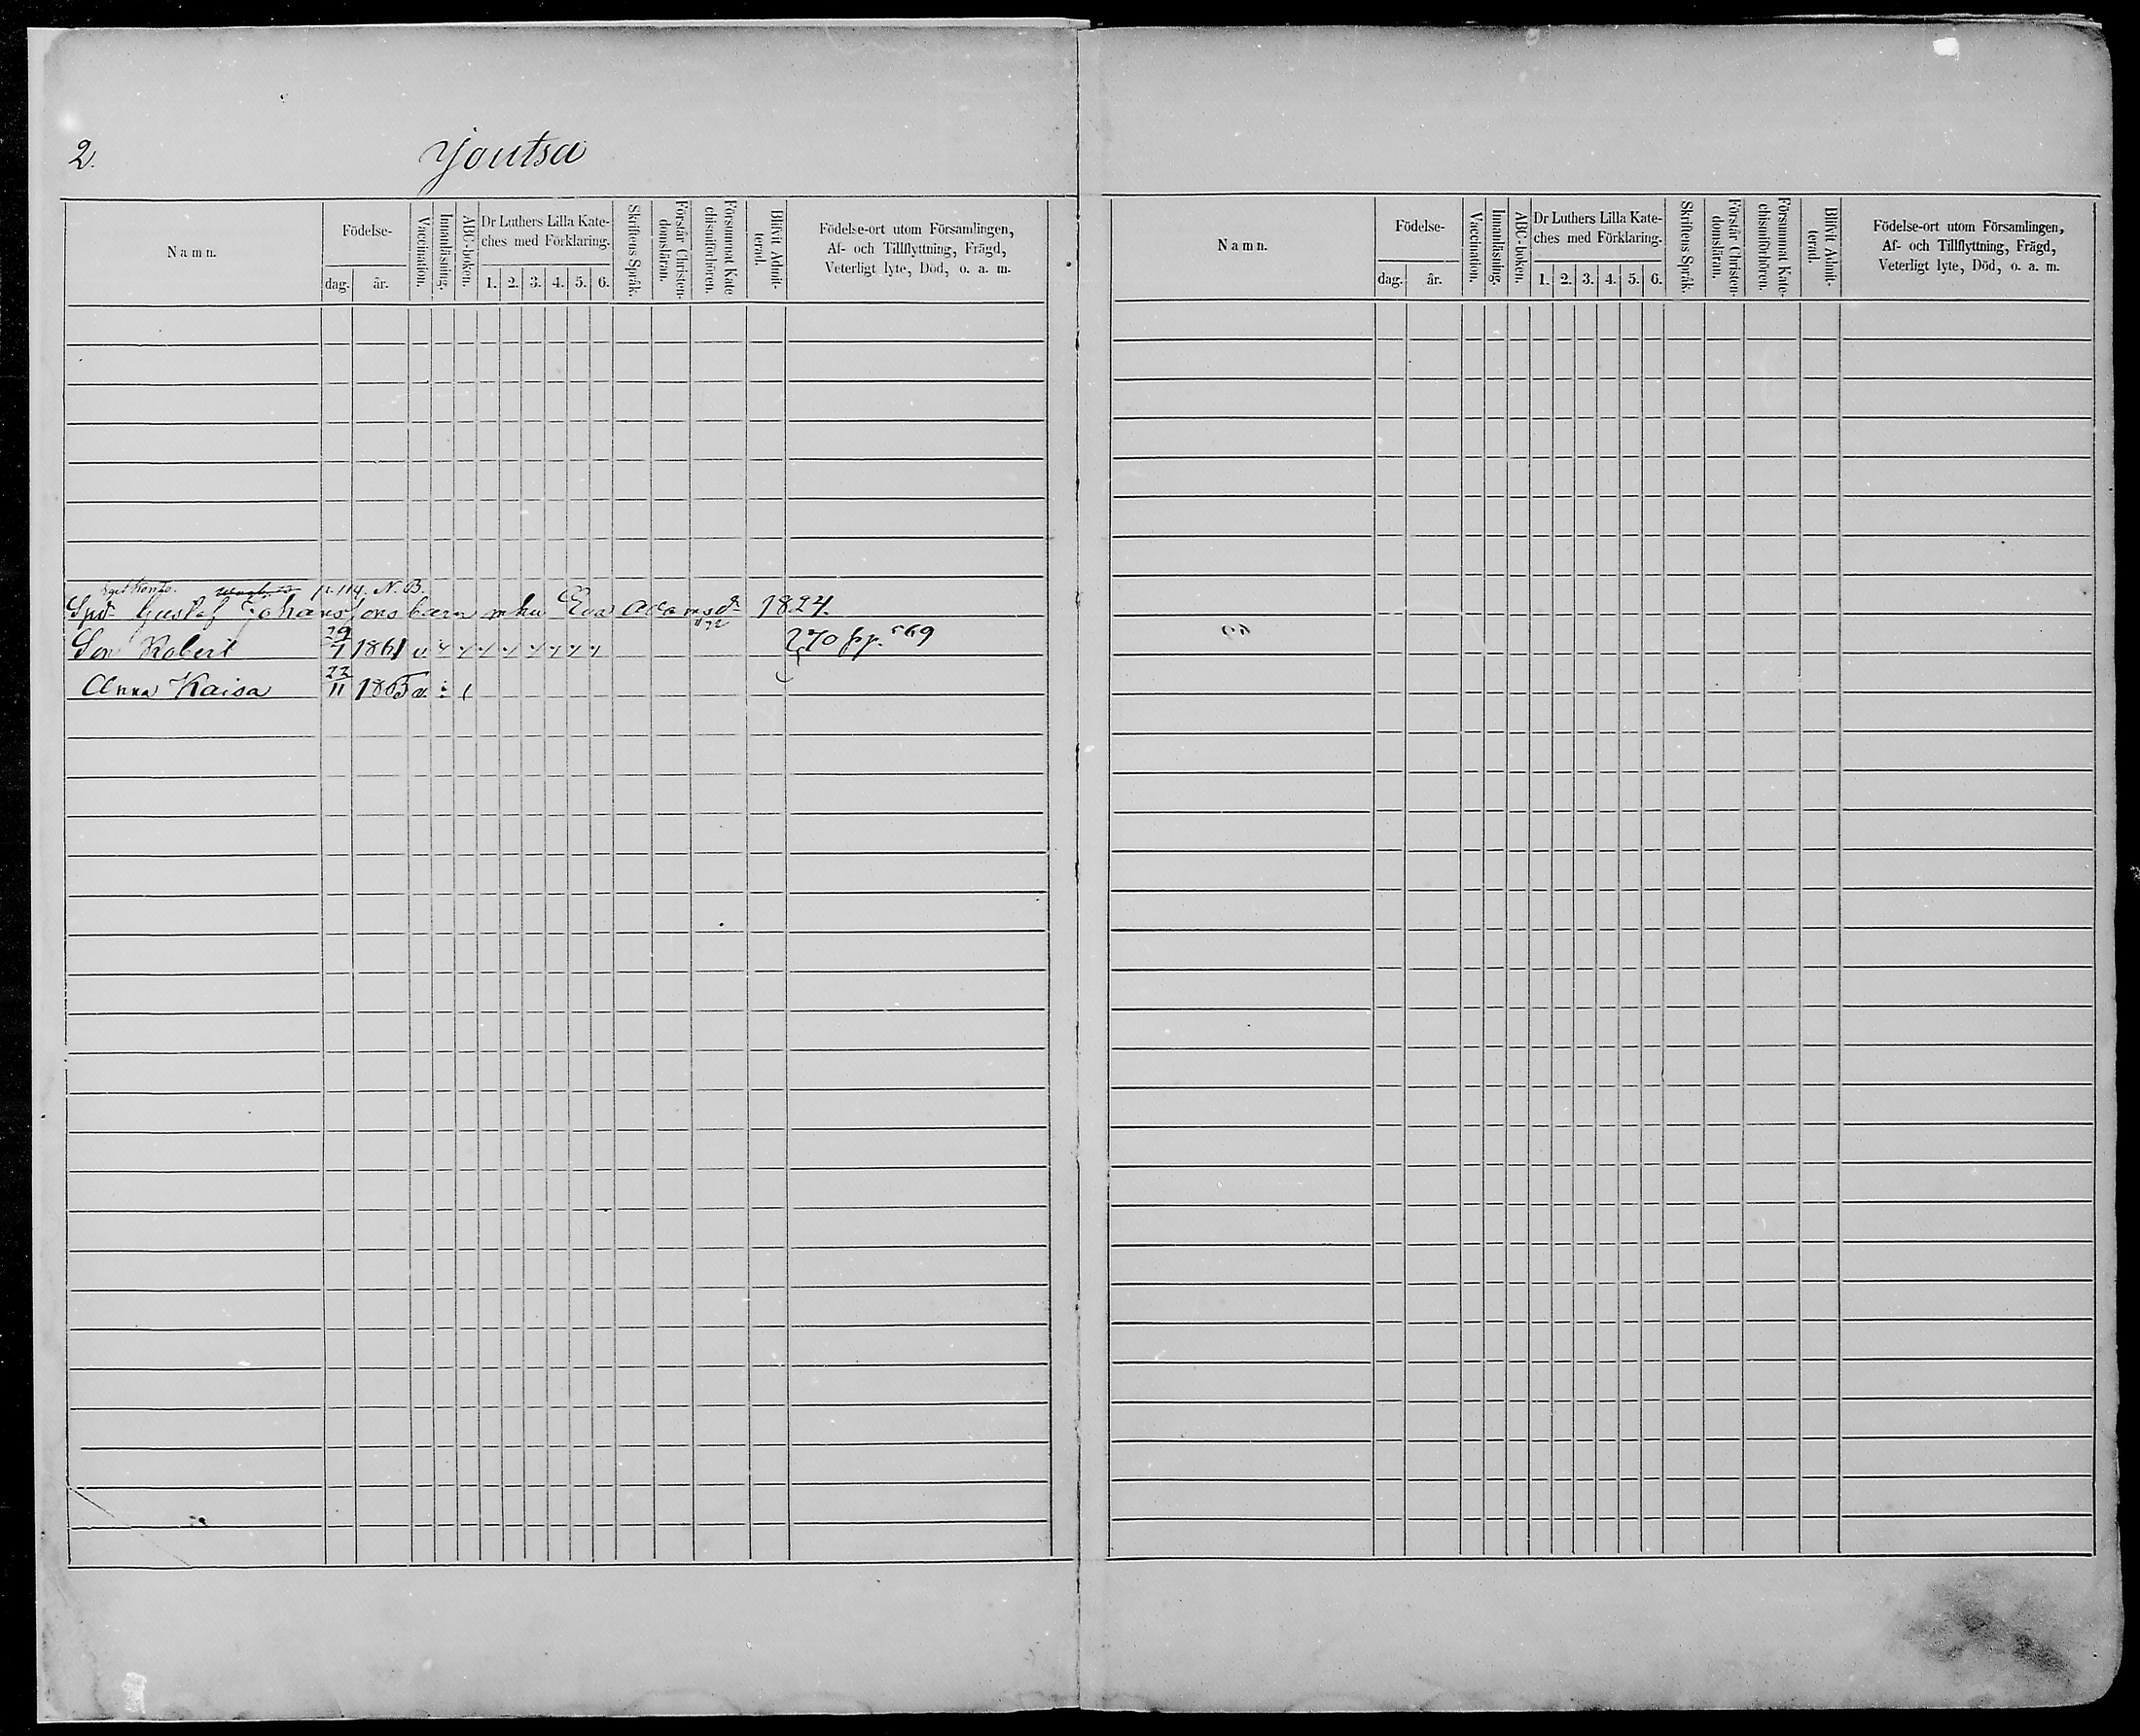 2. Joutsa
Namn. Födelse- dag. år. Vaccination. Innanläsning. ABC-boken. Dr Luthers Lilla Kateches med Förklaring. 1. 2. 3. 4. 5. 6. Skriftens Språk. Förstår Christendomsläran. Försummat Katechismiförhören. Blifvit Admitterad. Födelse-ort utom Församlingen, Af- och Tillflyttning, Frägd, Veterligt lyte, Död, o. a. m.
p. 114. N. B.
Gustaf Johanssons barn m hu Eva Adamsdr 1824.
Son Robert 29/7 1861 v 270 pp. 69
Anna Kaisa 22/11 1865 v.
Namn. Födelse- dag. år. Vaccination. Innanläsning. ABC-boken. Dr Luthers Lilla Kateches med Förklaring. 1. 2. 3. 4. 5. 6. Skriftens Språk. Förstår Christendomsläran. Försummat Katechismiförhören. Blifvit Admitterad. Födelse-ort utom Församlingen, Af- och Tillflyttning, Frägd, Veterligt lyte, Död, o. a. m.